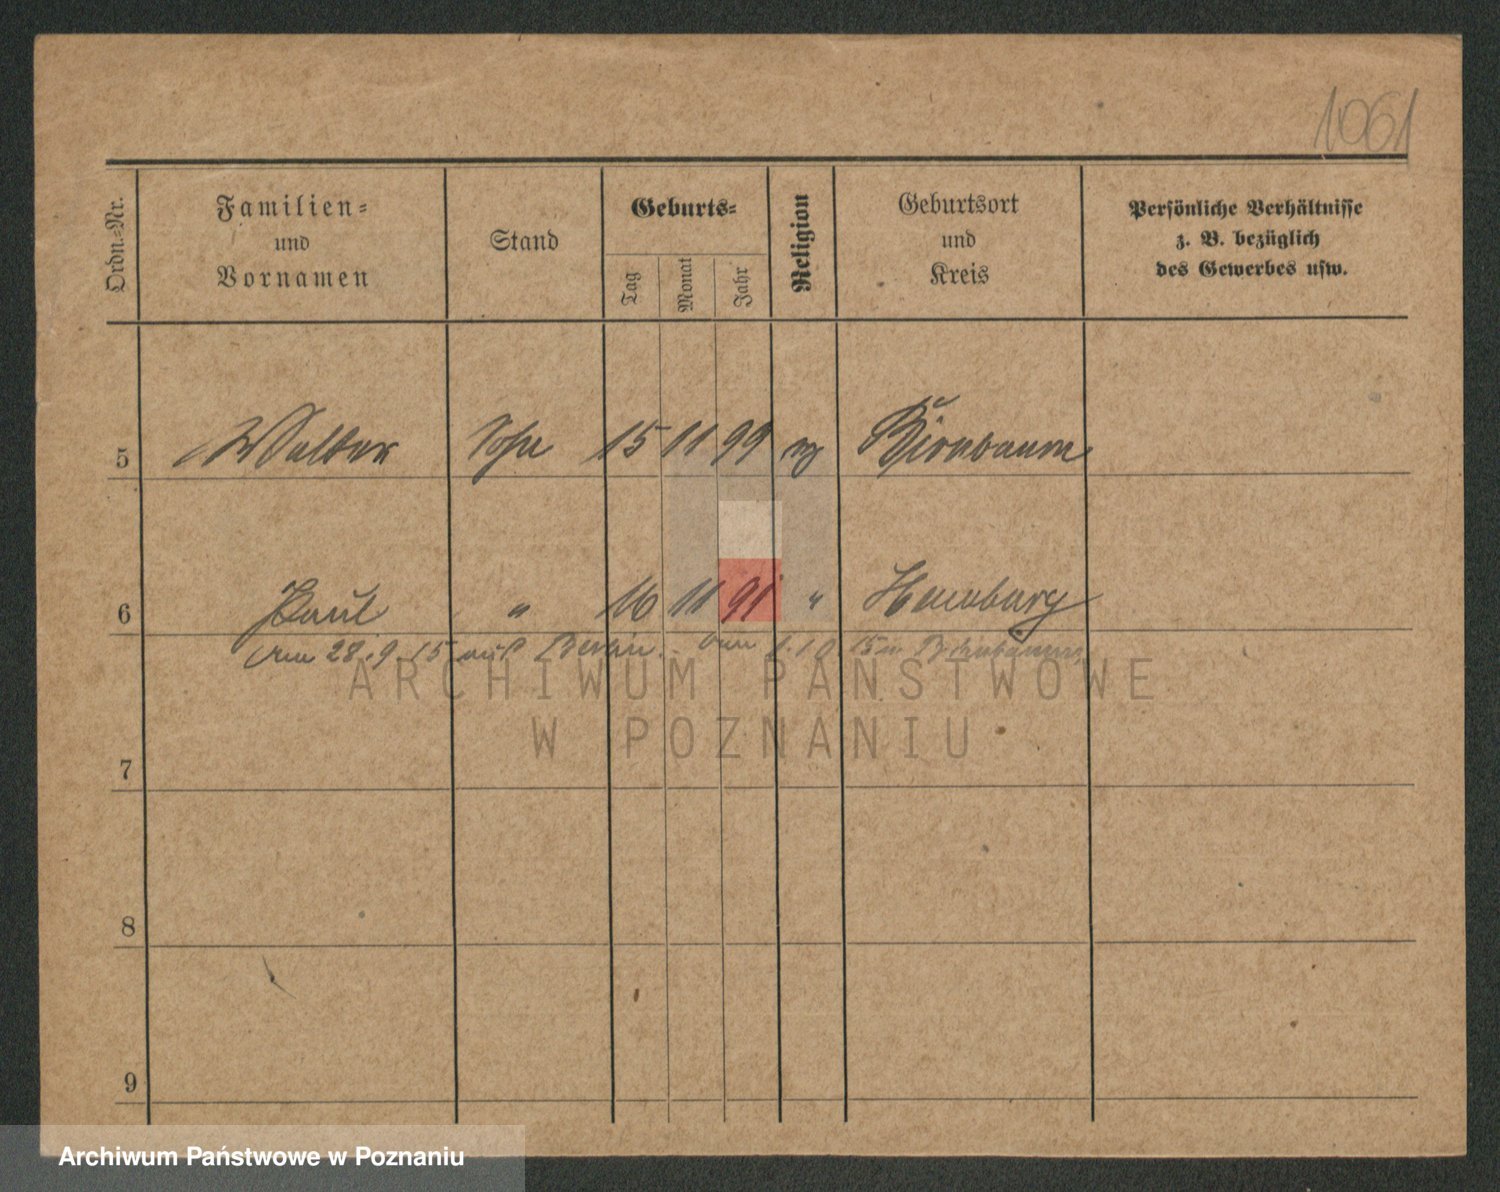 1061
Ordn.-Nr.
Familien-
und
Vornamen
Stand
Geburts-
Tag
Monat
Jahr
Religion
Geburtsort
und
Kreis
Persönliche Verhältnisse
z. B. bezüglich
des Gewerbes usw.
5 Walter Sohn 15 11 99 Birnbaum
6 Paul " 16 11 91 " Hamburg
Am 28.9.15 aus Berlin. Am 1.10 15 n Birnbaum
ARCHIWUM PAŃSTWOWE
W POZNANIU
7
8
9
Archiwum Państwowe w Poznaniu